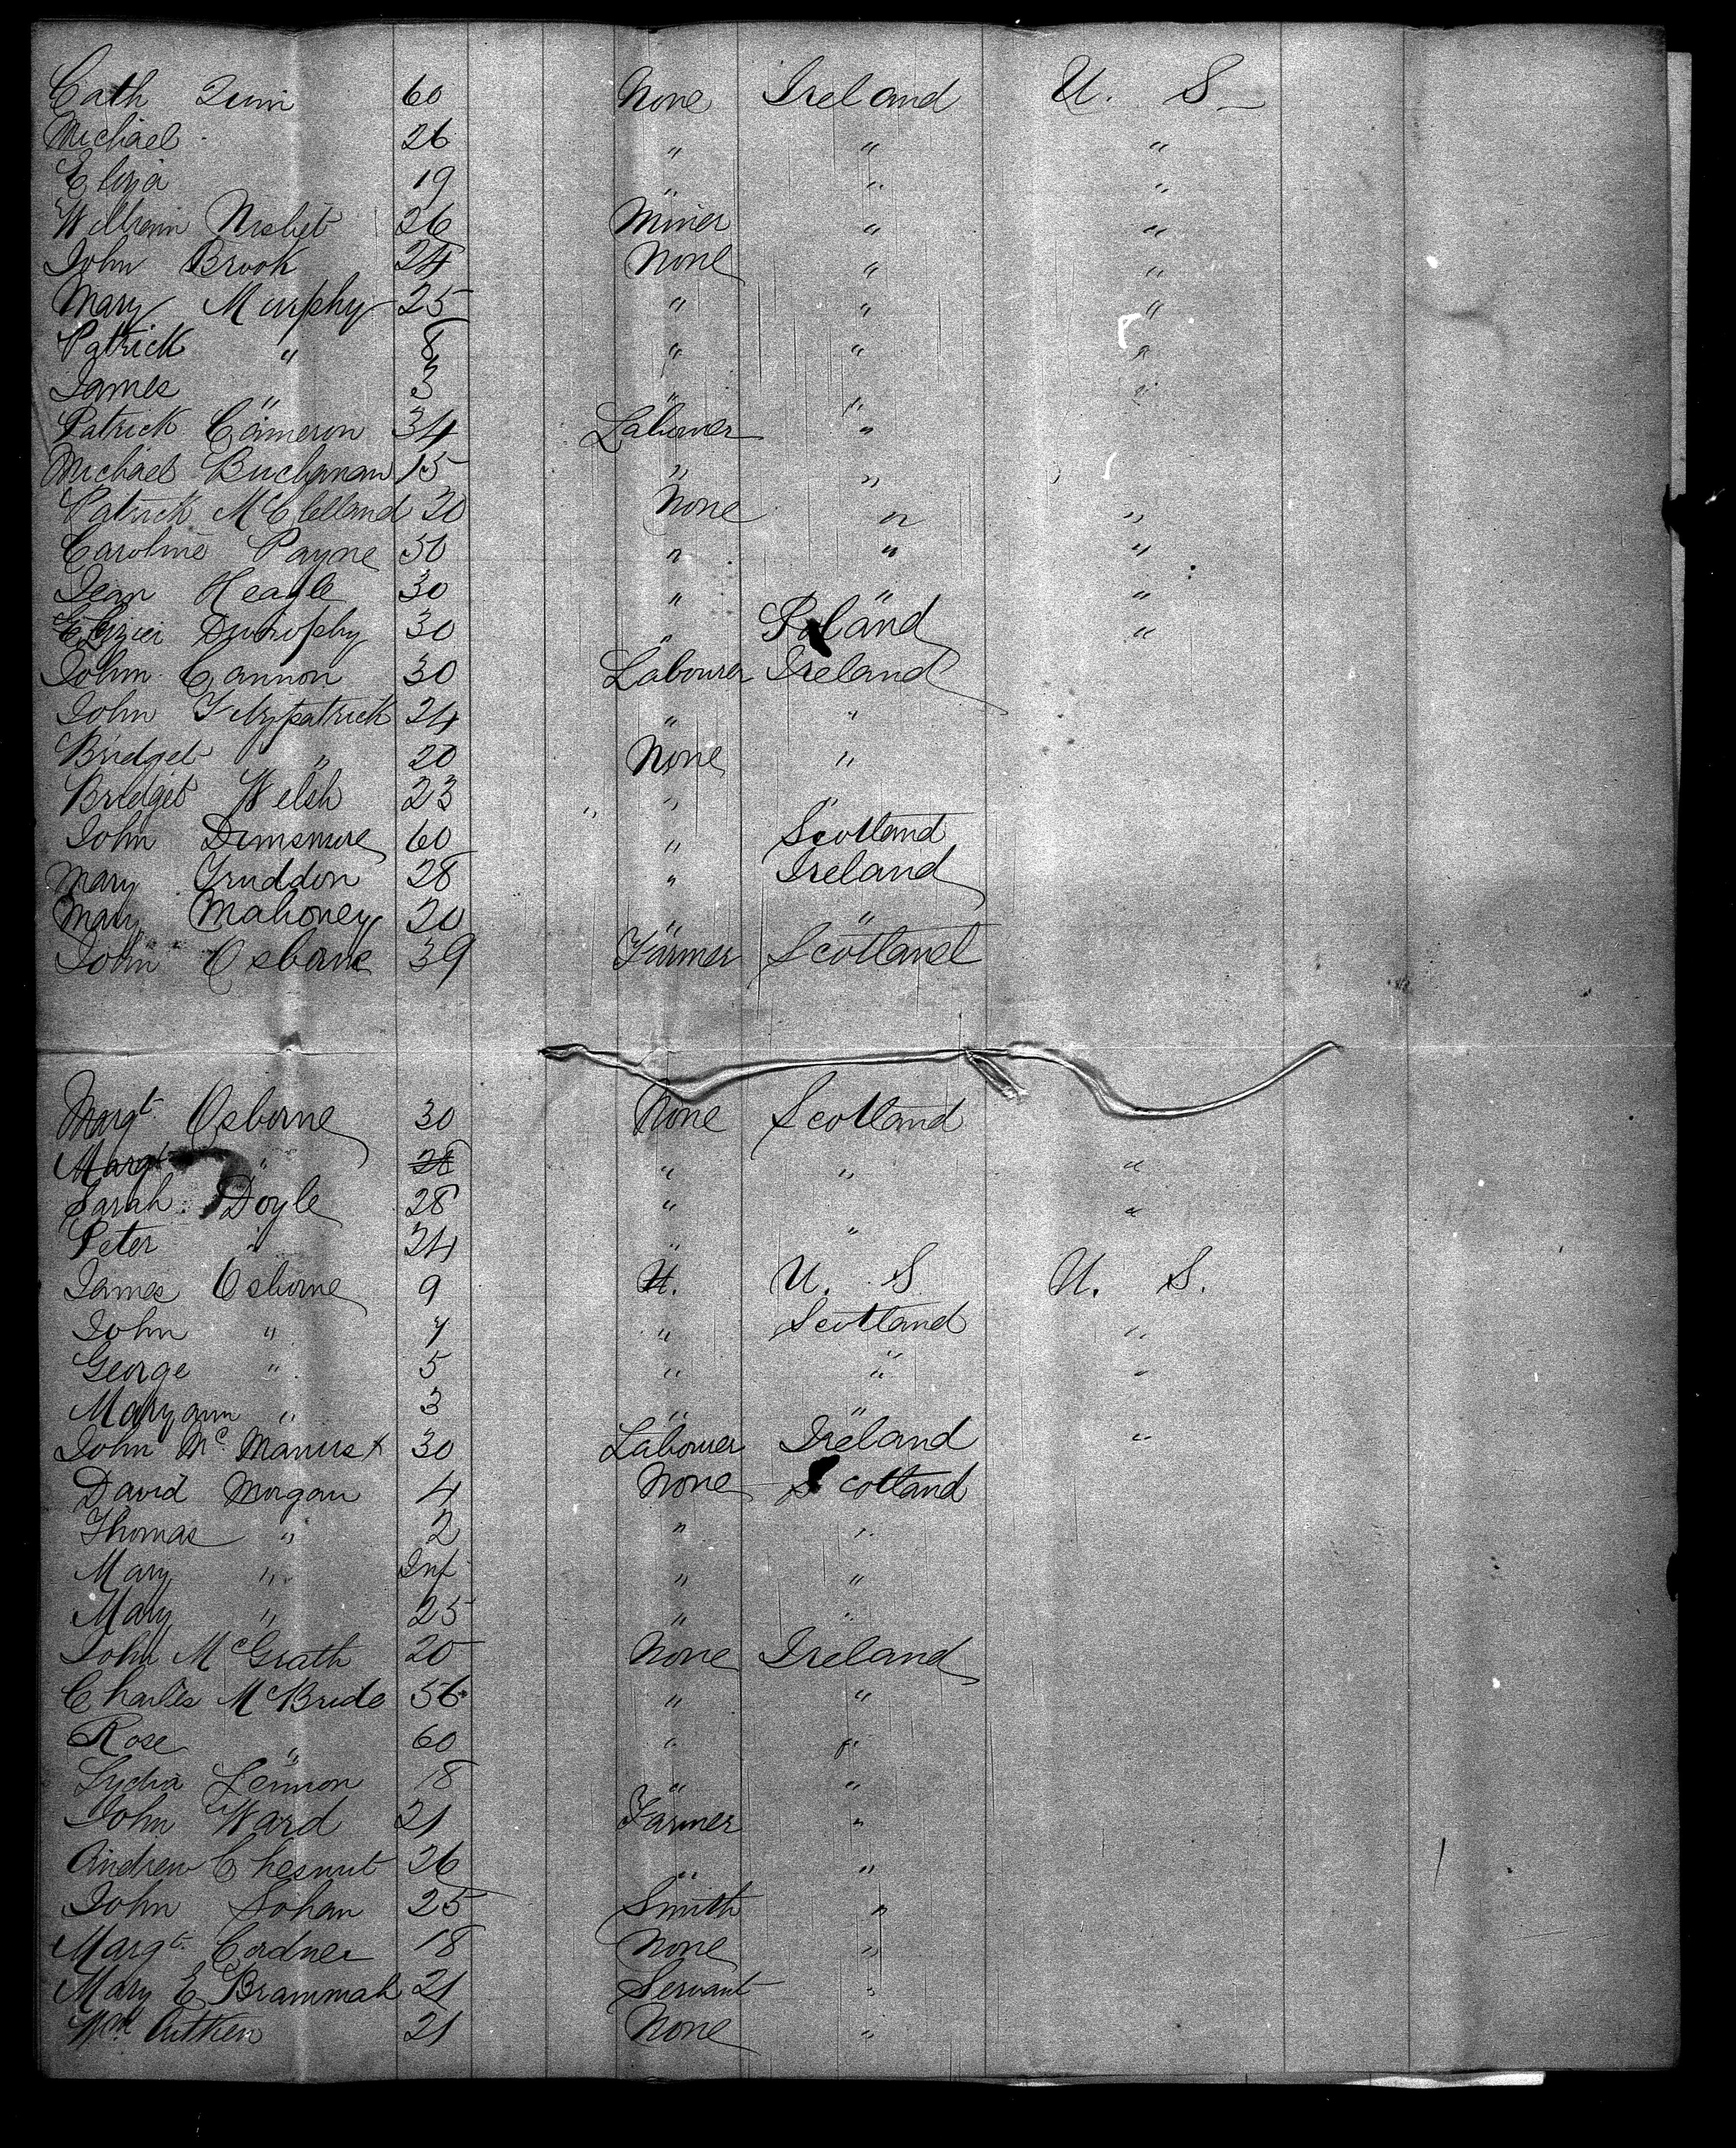 Cath Quin 60 None Ireland U. S
Michael 26 " " "
Eliza 19 " " "
William Nisbet 26 Miner " "
John Brook 24 None " "
Mary Murphy 25 " " "
Patrick " 8 " " "
James " 3 " " "
Patrick Cameron 34 Labourer "
Michael Buchanan 15 " "
Patrick McClelland 20 None " "
Caroline Payne 50 " " "
Jean Heagle 30 " " "
30 " Poland "
John Cannon 30 Labourer Ireland
John Fitzpatrick 24 " "
Bridget " 20 None "
Bridget Welsh 23 " "
John Dinsmure 60 " Scotland
Mary Gruddon 28 " Ireland
Mary Mahoney 20 " "
John Osborne 39 Farmer Scotland
Margt Osborne 30 None Scotland
Margt " 28 " " "
Sarah Doyle 28 " "
Peter " 24 " "
James Osborne 9 U. U. S U. S.
John " 7 " Scotland "
George " 5 " " "
Maryann " 3 " "
John McManus x 30 Labourer Ireland "
David Morgan 4 None Scotland
Thomas " 2 " "
Mary " Inf " "
Mary " 25 " "
John McGrath 20 None Ireland
Charles McBride 56 " "
Rose " 60 " "
Lydia Lennon 18 " "
John Ward 21 Farmer "
Andrew Chesnut 26 " "
John Sohan 25 Smith "
Margt Cordner 18 None "
Mary E Brammah 21 Servant "
Wm Aitken 21 None "